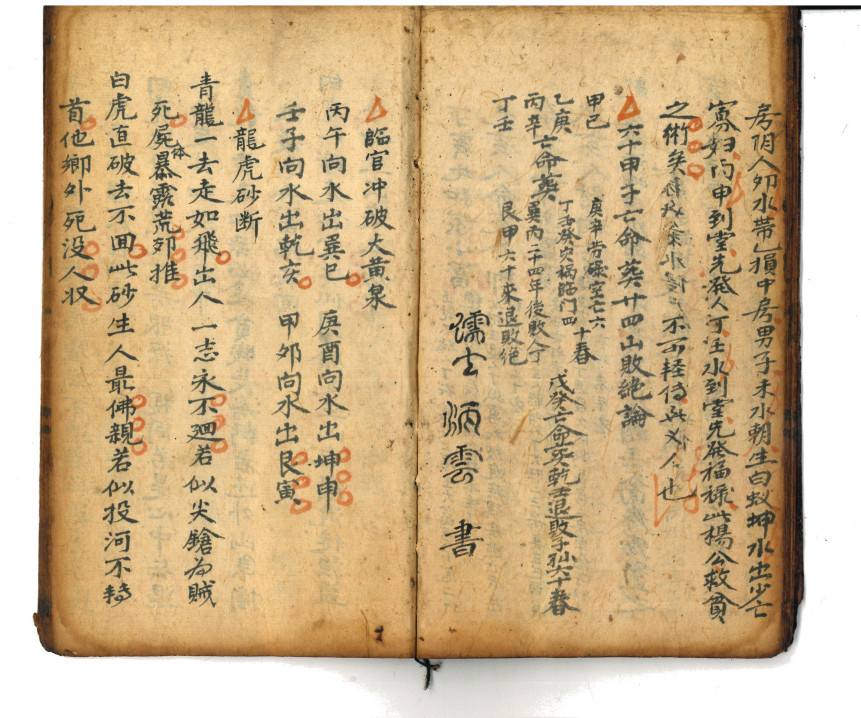 房阴人卯水帶乙損中房男子未水朝生白蚁坤水出少亡
寡妇丙申到堂先発人丁壬水到堂先発福禄此楊公救貧
之術矣 不可轻传与人也
六十甲子亡命葬廿四山敗絶論
甲巳
乙庚
丙辛
丁壬
亡命葬
庚辛劳碌空七六
丁壬癸灾禍臨门四
十春
巽丙二十四年後敗人丁
艮甲六十来退敗绝
戊癸亡命冥乾壬退敗子孙六十春
儒士 雲 書
臨官冲破大黄泉
丙午向水出巽巳 庚酉向水出坤申
壬子向水出乾亥 甲卯向水出艮寅
龍虎砂断
青龍一去走如飛出人一志永不廻若似尖鎗為贼
死屍体暴露荒郊推
白虎直破去不回此砂生人最佛親若似投河不转
首他鄉外死没人收